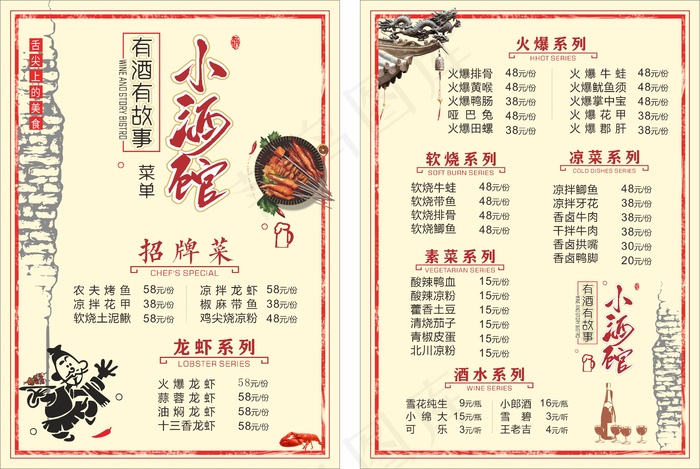 舌尖上的美食
有酒有故事
WINE AND STORY BISTRO
菜单
小酒馆
招牌菜
CHEF'S SPECIAL
农夫烤鱼 58元/份 凉拌龙虾 58元/份
凉拌花甲 38元/份 椒麻带鱼 38元/份
软烧土泥鳅 58元/份 鸡尖烧凉粉 48元/份
龙虾系列
LOBSTER SERIES
火爆龙虾 58元/份
蒜蓉龙虾 58元/份
油焖龙虾 58元/份
十三香龙虾 58元/份
火爆系列
HHOT SERIES
火爆排骨 48元/份 火爆牛蛙 48元/份
火爆黄喉 48元/份 火爆鱿鱼须 48元/份
火爆鸭肠 38元/份 火爆掌中宝 48元/份
哑巴兔 48元/份 火爆花甲 38元/份
火爆田螺 38元/份 火爆郡肝 38元/份
软烧系列
SOFT BURN SERIES
软烧牛蛙 48元/份
软烧带鱼 48元/份
软烧排骨 48元/份
软烧鲫鱼 48元/份
凉菜系列
COLD DISHES SERIES
凉拌鲫鱼 48元/份
凉拌牙花 38元/份
香卤牛肉 38元/份
干拌牛肉 38元/份
香卤拱嘴 30元/份
香卤鸭脚 20元/份
素菜系列
VEGETARIAN SERIES
酸辣鸭血 15元/份
酸辣凉粉 15元/份
藿香土豆 15元/份
清烧茄子 15元/份
青椒皮蛋 15元/份
北川凉粉 15元/份
有酒有故事
小酒馆
酒水系列
WINE SERIES
雪花纯生 9元/瓶 小郎酒 16元/瓶
小绵大 15元/瓶 雪碧 3元/听
可乐 3元/听 王老吉 4元/听